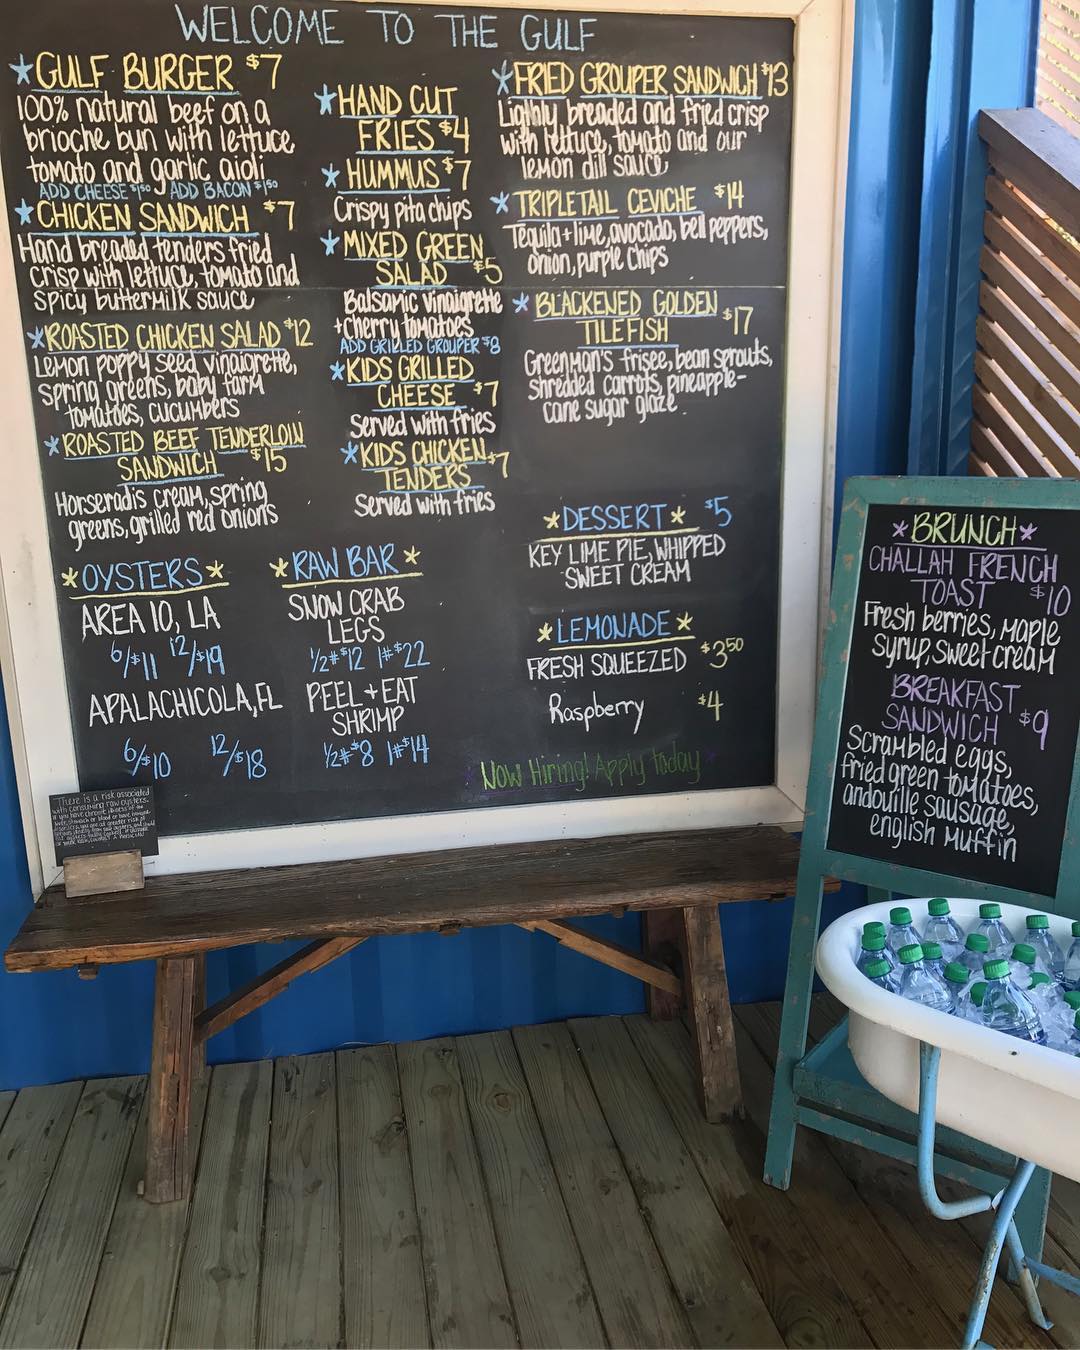 WELCOME TO THE GULF
GULF BURGER $7
100% natural beef on a
brioche bun with lettuce
tomato and garlic aioli
ADD CHEESE $1.50 ADD BACON $1.50
CHICKEN SANDWICH $7
Hand breaded tenders fried
crisp with lettuce, tomato and
spicy buttermilk sauce
ROASTED CHICKEN SALAD $12
Lemon poppy seed vinaigrette,
spring greens, baby farm
tomatoes, cucumbers
ROASTED BEEF TENDERLOIN
SANDWICH $15
Horseradis cream, spring
greens, grilled red onions
HAND CUT
FRIES $4
HUMMUS $7
Crispy pita chips
MIXED GREEN
SALAD $5
Balsamic vinaigrette
+ cherry tomatoes
ADD GRILLED GROUPER $8
KIDS GRILLED
CHEESE $7
Served with fries
KIDS CHICKEN $7
TENDERS
Served with fries
FRIED GROUPER SANDWICH $13
Lighly breaded and fried crisp
with lettuce, tomato and our
lemon dill sauce
TRIPLETAIL CEVICHE $14
Tequila + lime, avocado, bell peppers,
onion, purple chips
BLACKENED GOLDEN $17
TILEFISH
Greenman's frisee, bean sprouts,
shredded carrots, pineapple-
cane sugar glaze
OYSTERS
AREA 10, LA
6/$11 12/$19
APALACHICOLA, FL
6/$10 12/$18
RAW BAR
SNOW CRAB
LEGS
1/2# $12 1# $22
PEEL + EAT
SHRIMP
1/2# $8 1# $14
DESSERT $5
KEY LIME PIE, WHIPPED
SWEET CREAM
LEMONADE
FRESH SQUEEZED $3.50
Raspberry $4
Now Hiring! Apply today
There is a risk associated
with consuming raw oysters.
BRUNCH
CHALLAH FRENCH
TOAST $10
Fresh berries, maple
syrup, sweet cream
BREAKFAST
SANDWICH $9
Scrambled eggs,
fried green tomatoes,
andouille sausage,
english muffin